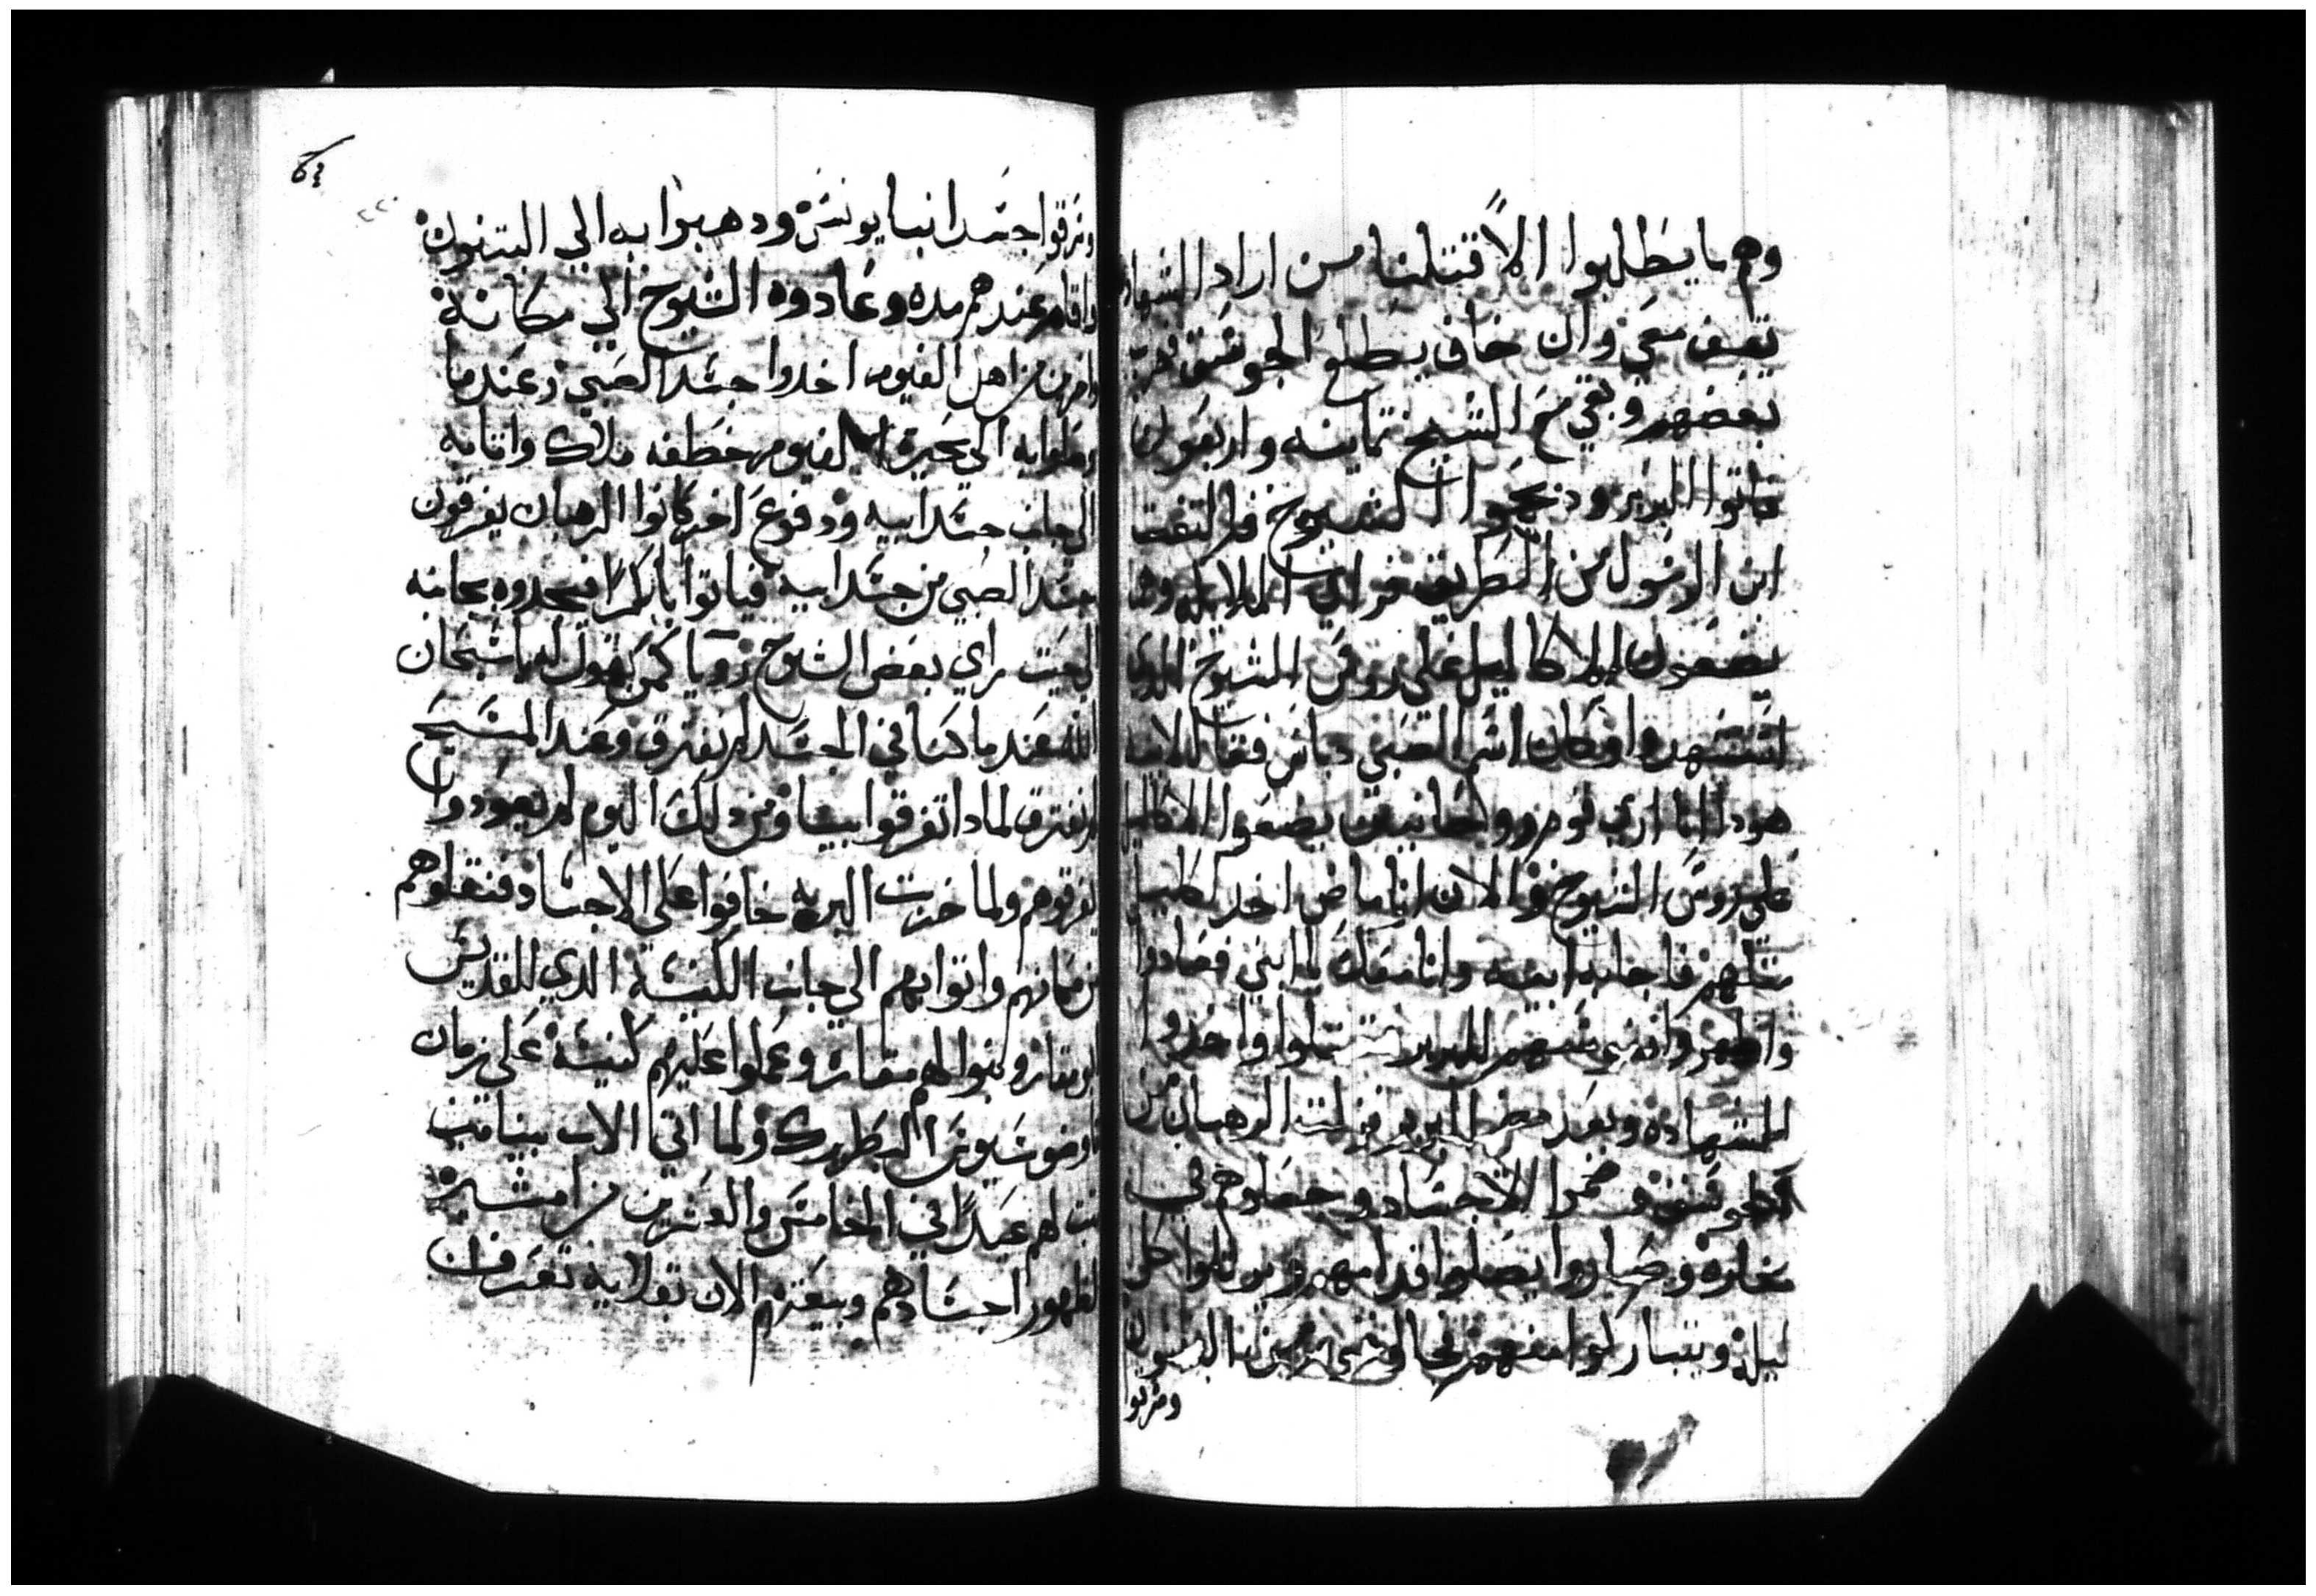 وهم ما يطلبوا الا قتلنا من اراد الشهاده
تقف معي وان خاف يطلع الجوسق فهرب
بعضهم وبقي مع الشيخ تمانيه واربعون
فاتوا البربر ودبحوا الشيوخ فالتفت
ابن الرسول من الطريق فراي الملايكه وهم
يضعون الاكاليل على روس الشيوخ الدي
استشهدوا وكان اسم الصبي دياس فقال لابيه
هودا انا اري قوم روحانيين يضعوا الاكاليل
على روس الشيوخ والان انا ماض اخد اكليل
مثلهم فاجابه ابيه وانا معك يا ابني فعادوا
واظهروا انفسهم للبربر فقتلوا واخدوا
الشهاده وبعد مضي البربر نزلت الرهبان من
الجوسق وضموا الاجساد وجعلوهم في
مغاره وصاروا يصلوا قدامهم ويرتلوا كل
ليله ويتباركوا منهم فجا قوم من البتنون
وسرقوا
وسرقوا جسد انبا يونس ودهبوا به الي البتنون
واقام عندهم مده وعادوه الشيوخ الي مكانه
واخرين من اهل الفيوم اخدوا جسد الصبي وعند ما
وصلوا به الي بحيرة الفيوم خطفه ملاك واتا به
الي جانب جسد ابيه ودفوع اخر كانوا الرهبان يفرقون
جسد الصبي من جسد ابيه فياتوا باكرا فيجدوه بجانبه
الي حيت راي بعض الشيوخ رويا كمن يقول له يا سبحان
الله عند ما كنا في الجسد لم نفترق وعند المسيح
لم نفترق لمادا تفرقوا بيننا ومن دلك اليوم لم يعودوا
يفرقوهم ولما خربت البريه خافوا على الاجساد فنقلوهم
من مكانهم واتوا بهم الي جانب الكنيسة الدي للقديس
ابو مقار وبنوا لهم مغاره وعملوا عليهم كنيسه على زمان
تاودوسيوس البطريرك ولما اتي الاب بنيامين
رتب لهم عيدا في الخامس والعشرين من امشير
لظهور اجسادهم وبيعتهم الان بقلايه تعرف